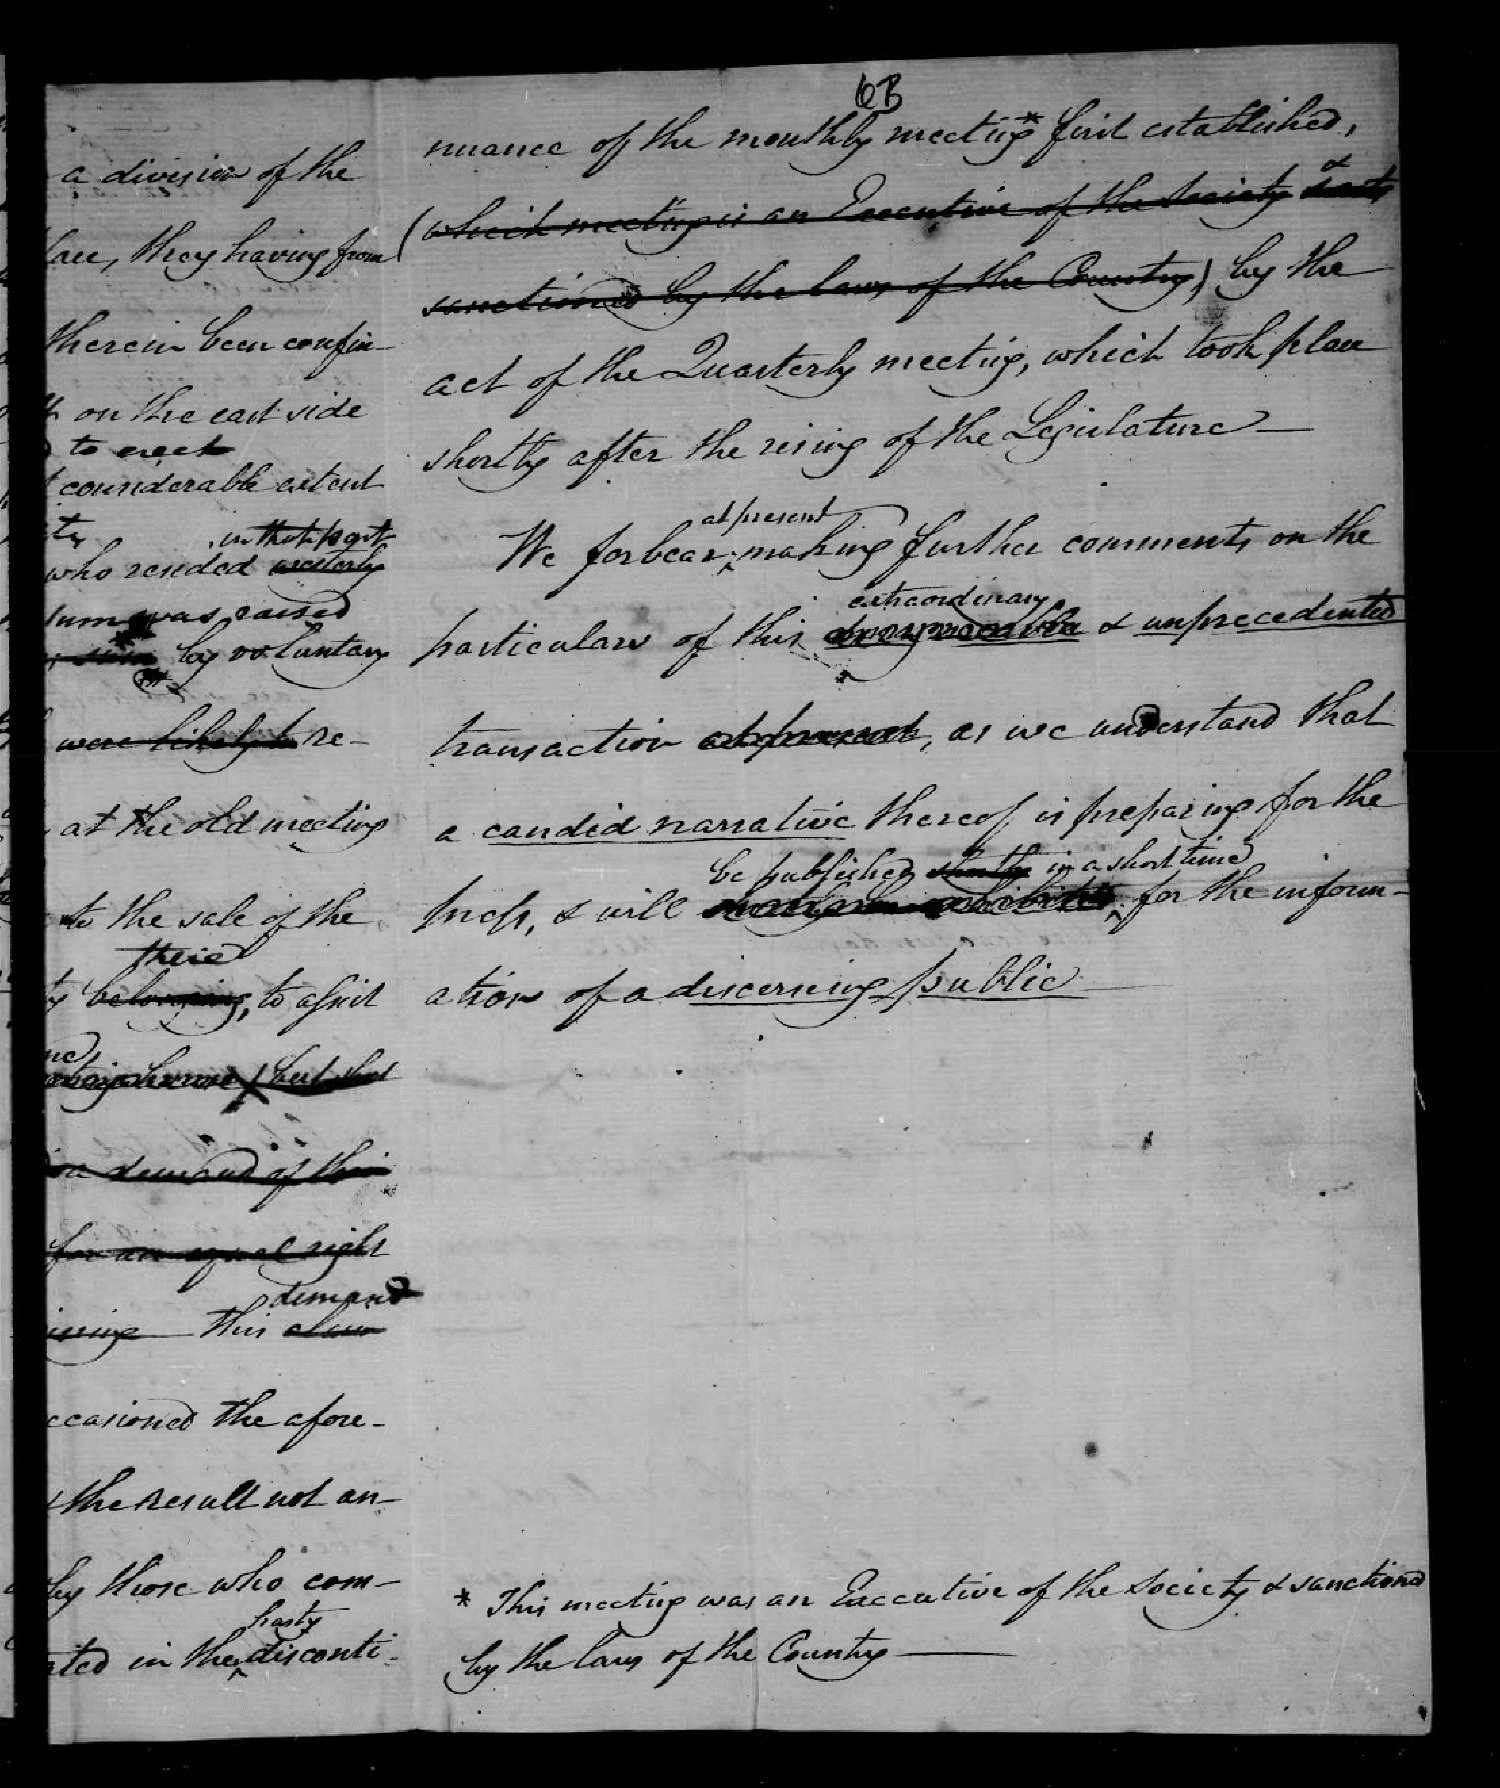 a division of the
they having from
therein been confin-
on the east side
to erect
considerable extent
in that part
who resided westerly
sum was raised
by voluntary
were likely to re-
at the old meeting
to the sale of the
their
belonging, to assist
but that
demand of their
for an equal right
demand
this claim
the afore-
the result not an-
by those who com-
hasty
in the ^ disconti-
6B
nuance of the monthly meeting * first established,
(which meeting is an Executive of the Society &
sanctioned by the laws of the Country) by the
act of the Quarterly meeting, which took place
shortly after the rising of the Legislature —
at present
We forbear ^ making further comments on the
extraordinary
particulars of this & unprecedented
transaction at present, as we understand that
a candid narrative thereof is preparing for the
be published shortly in a short time
Press, & will ^ for the inform-
ation of a discerning public —
* This meeting was an Executive of the Society & sanctioned
by the laws of the Country —